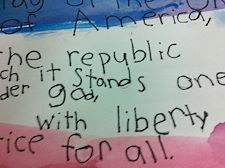 of the
of America,
the republic
ch it stands one
der god,
with liberty
ice for all.